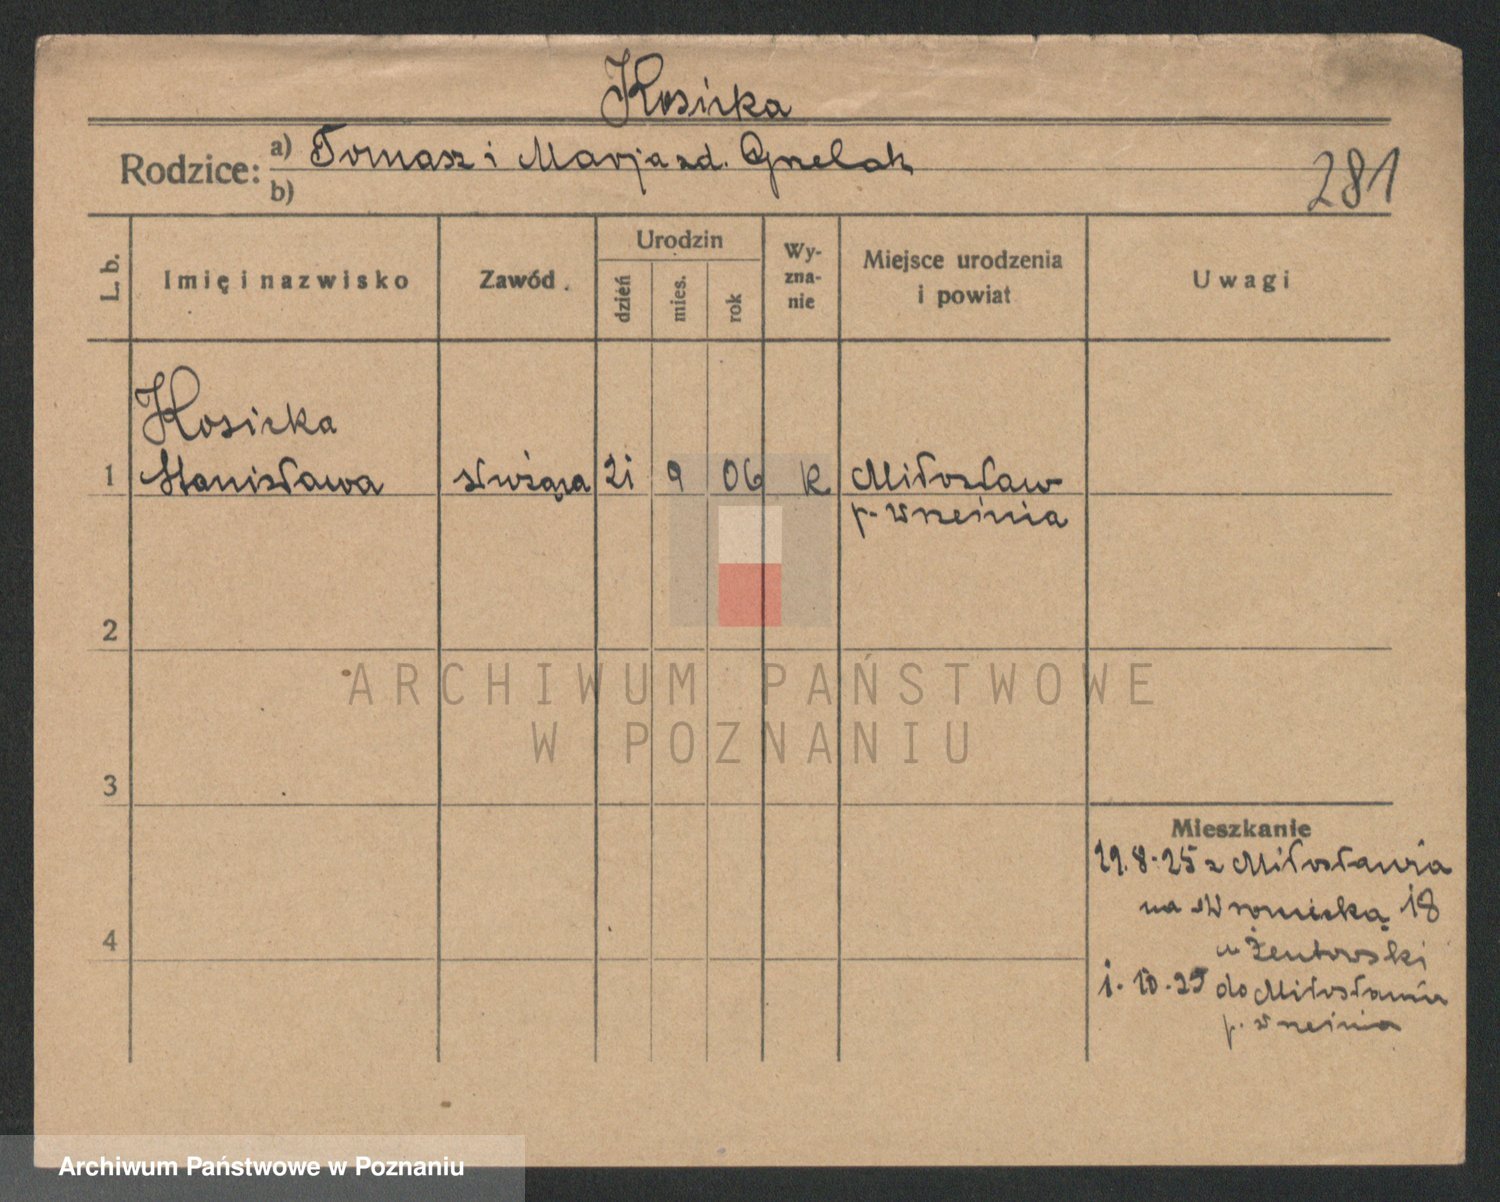 Kosicka
Rodzice: a) Tomasz i Marja zd. Grzelak
b)
281
L. b.
Imię i nazwisko
Zawód.
Urodzin
dzień
mies.
rok
Wy-
zna-
nie
Miejsce urodzenia
i powiat
Uwagi
Kosicka
1 Stanisława służąca 21 9 06 K Miłosław
p. Września
2
3
4
Mieszkanie
29.8.25 z Miłosławia
na Wroniecką 18
u
1.10.25 do Miłosławia
p. Września
ARCHIWUM PAŃSTWOWE
W POZNANIU
Archiwum Państwowe w Poznaniu